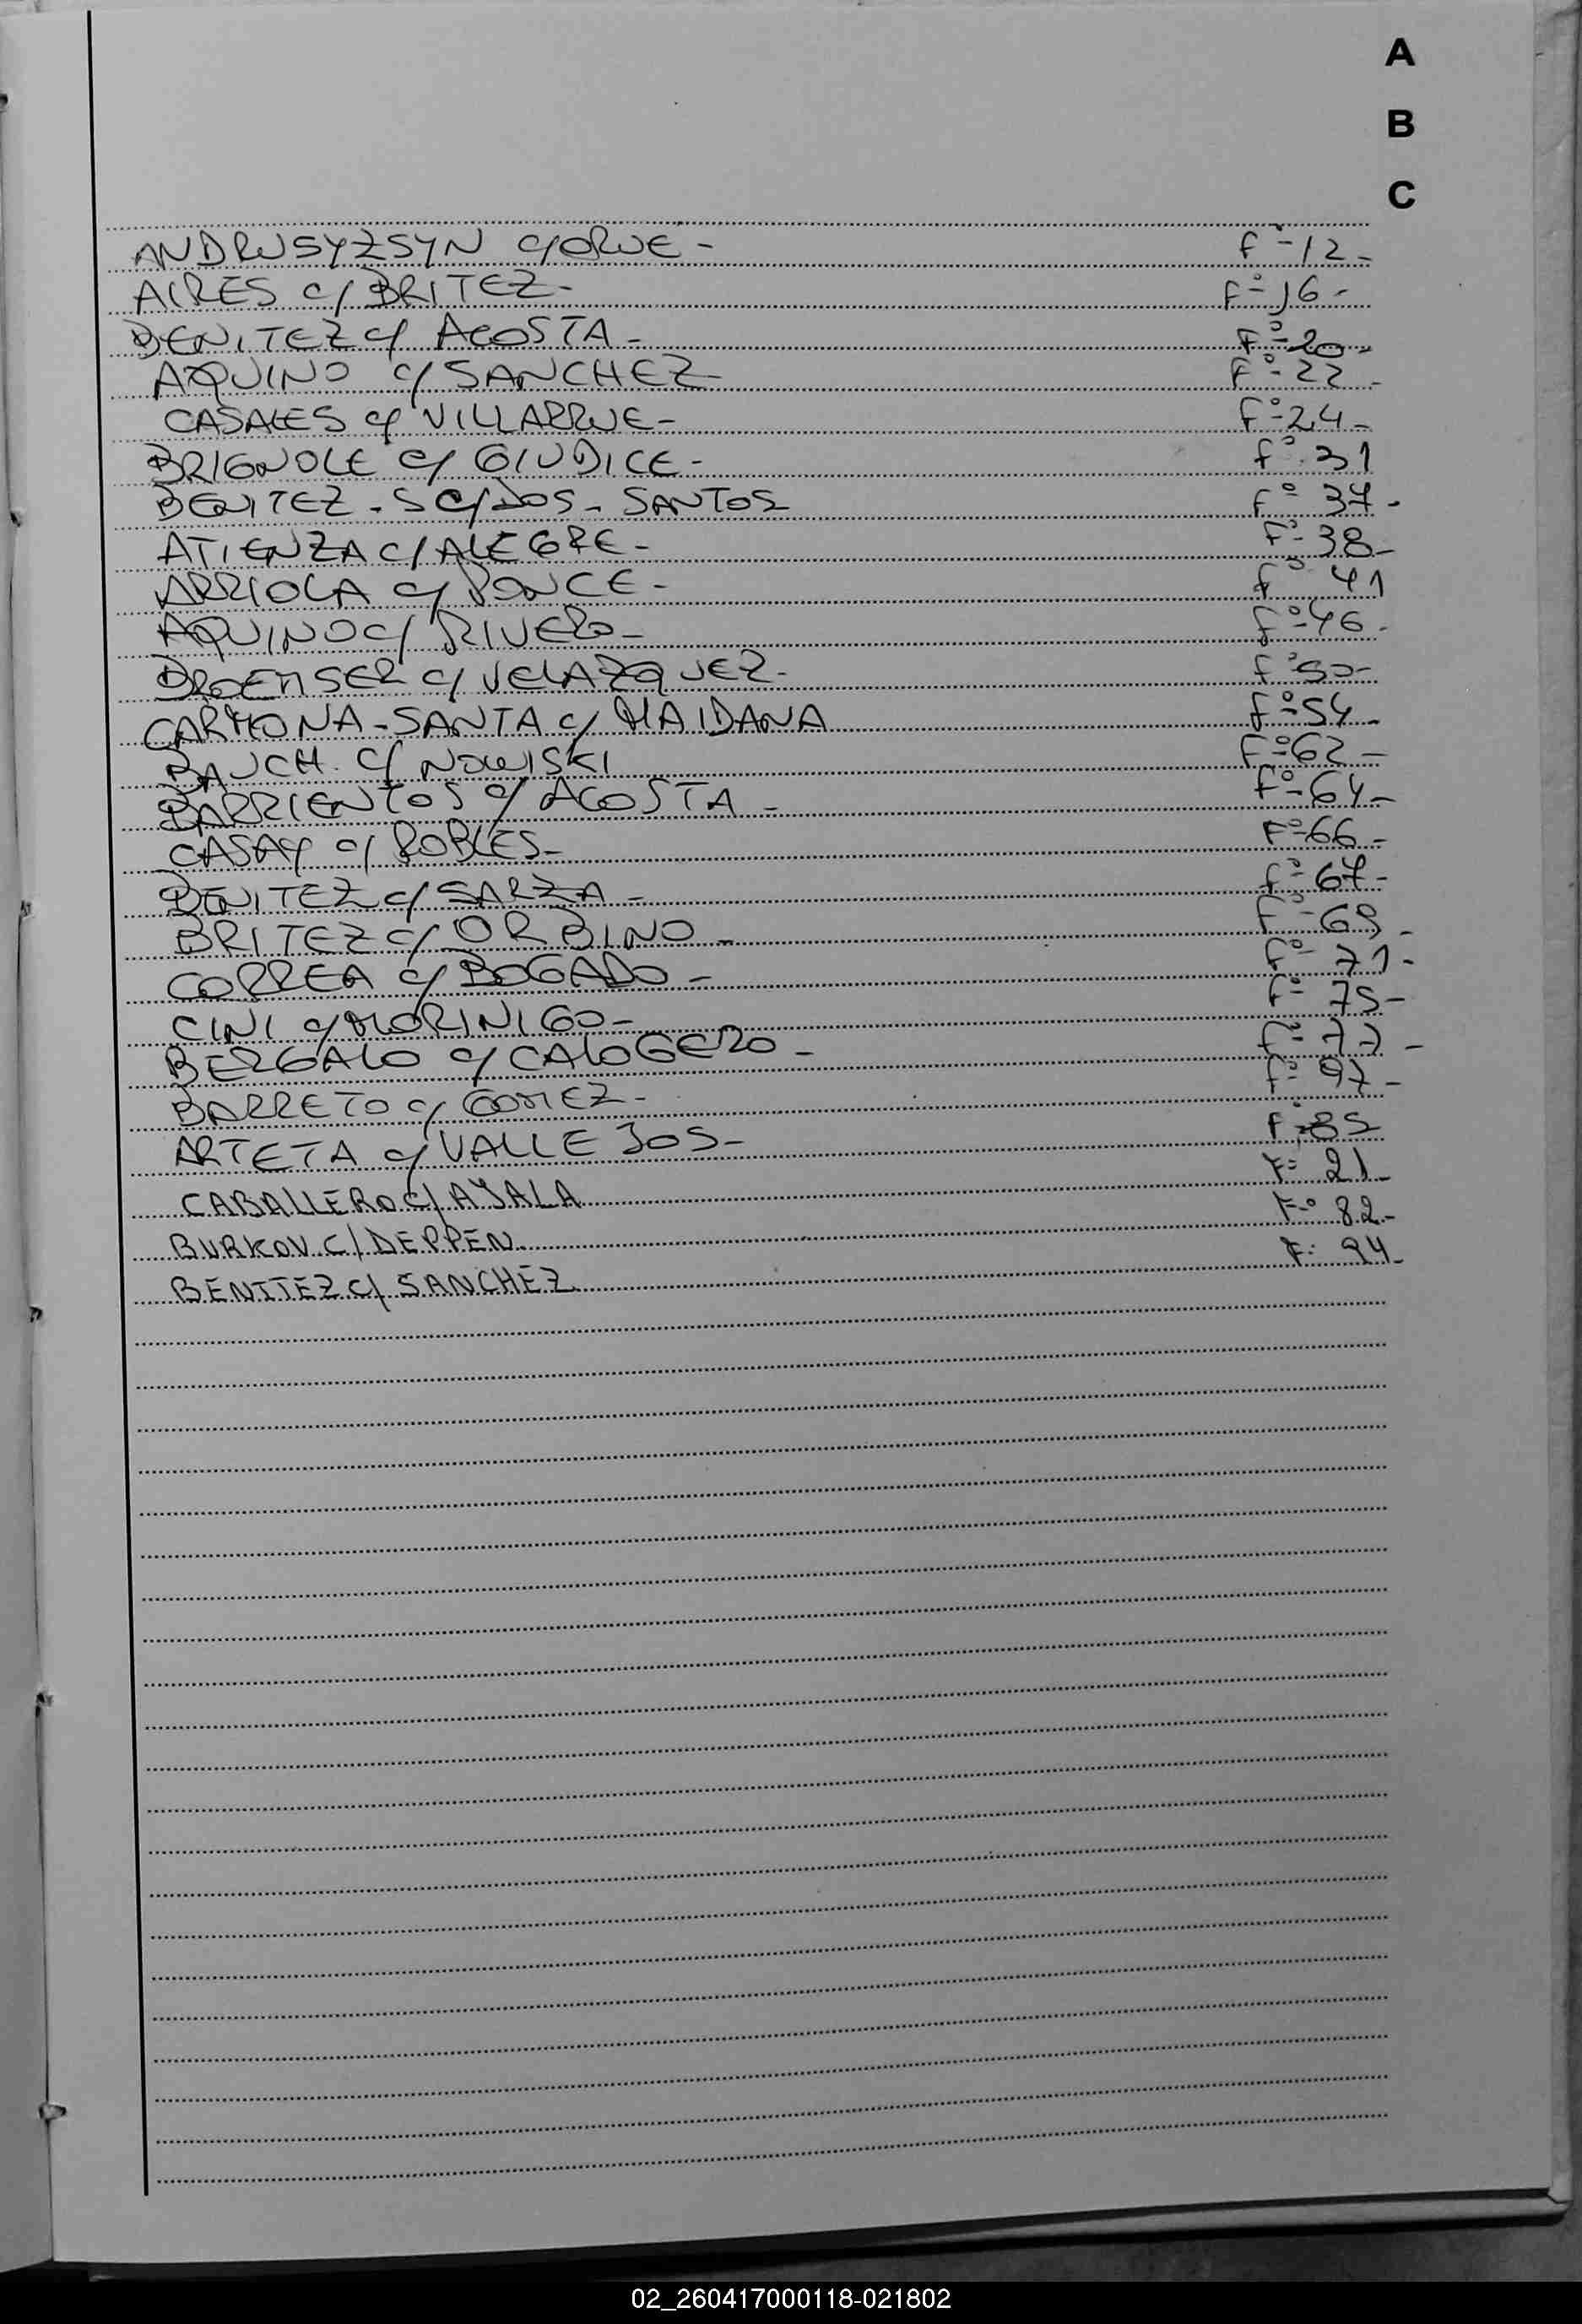 A
B
C
ANDRUSYZSYN c/ORUE - fº-12-
AIRES c/ BRITEZ- Fº-16-
BENITEZ c/ ACOSTA - Fº-20-
AQUINO c/ SANCHEZ- Fº-22-
CASALES c/ VILLARRUE- Fº-24-
BRIGNOLE c/ GIUDICE- fº-31
BENITEZ-S c/DOS-SANTOS fº-37-
ATIENZA c/ALEGRE- Fº-38-
ARRIOLA c/ PONCE- fº 41
AQUINO c/ RIVERO- fº-46-
c/ VELAZQUEZ- fº-50-
CARMONA-SANTA c/ MAIDANA fº-54-
BAUCH. c/ NOWISKI Fº-62-
BARRIENTOS c/ ACOSTA- fº-64-
CASAY c/ ROBLES- Fº-66-
BENITEZ c/ SARZA- fº-67-
BRITEZ c/ ORBINO- Fº-69-
CORREA c/ BOGADO- fº-71-
CINI c/MORINIGO- fº-75-
BERGALO c/ CALOGERO- fº-77-
BARRETO c/ GOMEZ- fº-97-
ARTETA c/ VALLEJOS- fº-85
CABALLERO C/ AYALA F= 21-
BURKOV C/ DEPPEN F-º 82-
BENITEZ C/ SANCHEZ F: 94-
02_260417000118-021802